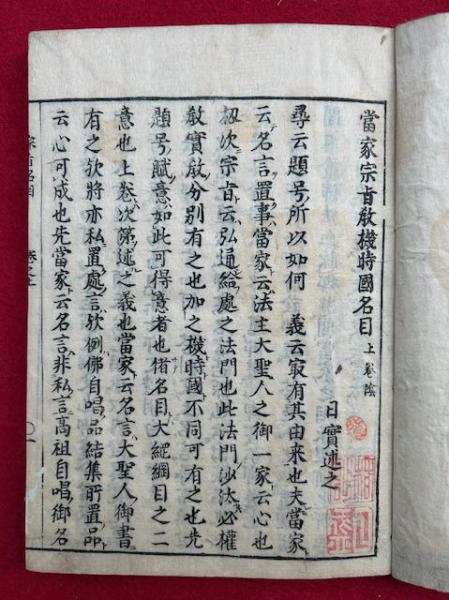 當家宗旨教機時國名目 上卷陰
日實述之
尋云題号所以如何 義云最有其由来也夫當家
云名言置事當家云法主大聖人之御一家云心也
扨次宗旨云弘通給處之法門也此法門沙汰必權
教實教分別有之也加之機時國不同可有之也先
題号賦意如此可得意者也偖名目大綱網目之二
意也上卷次第述之義也當家云名言大聖人御書
有之欤將亦私置處言欤例佛自唱品結集所置品
云心可成也先當家云名言非私言高祖自唱御名
宗旨名目
卷之上
〇一